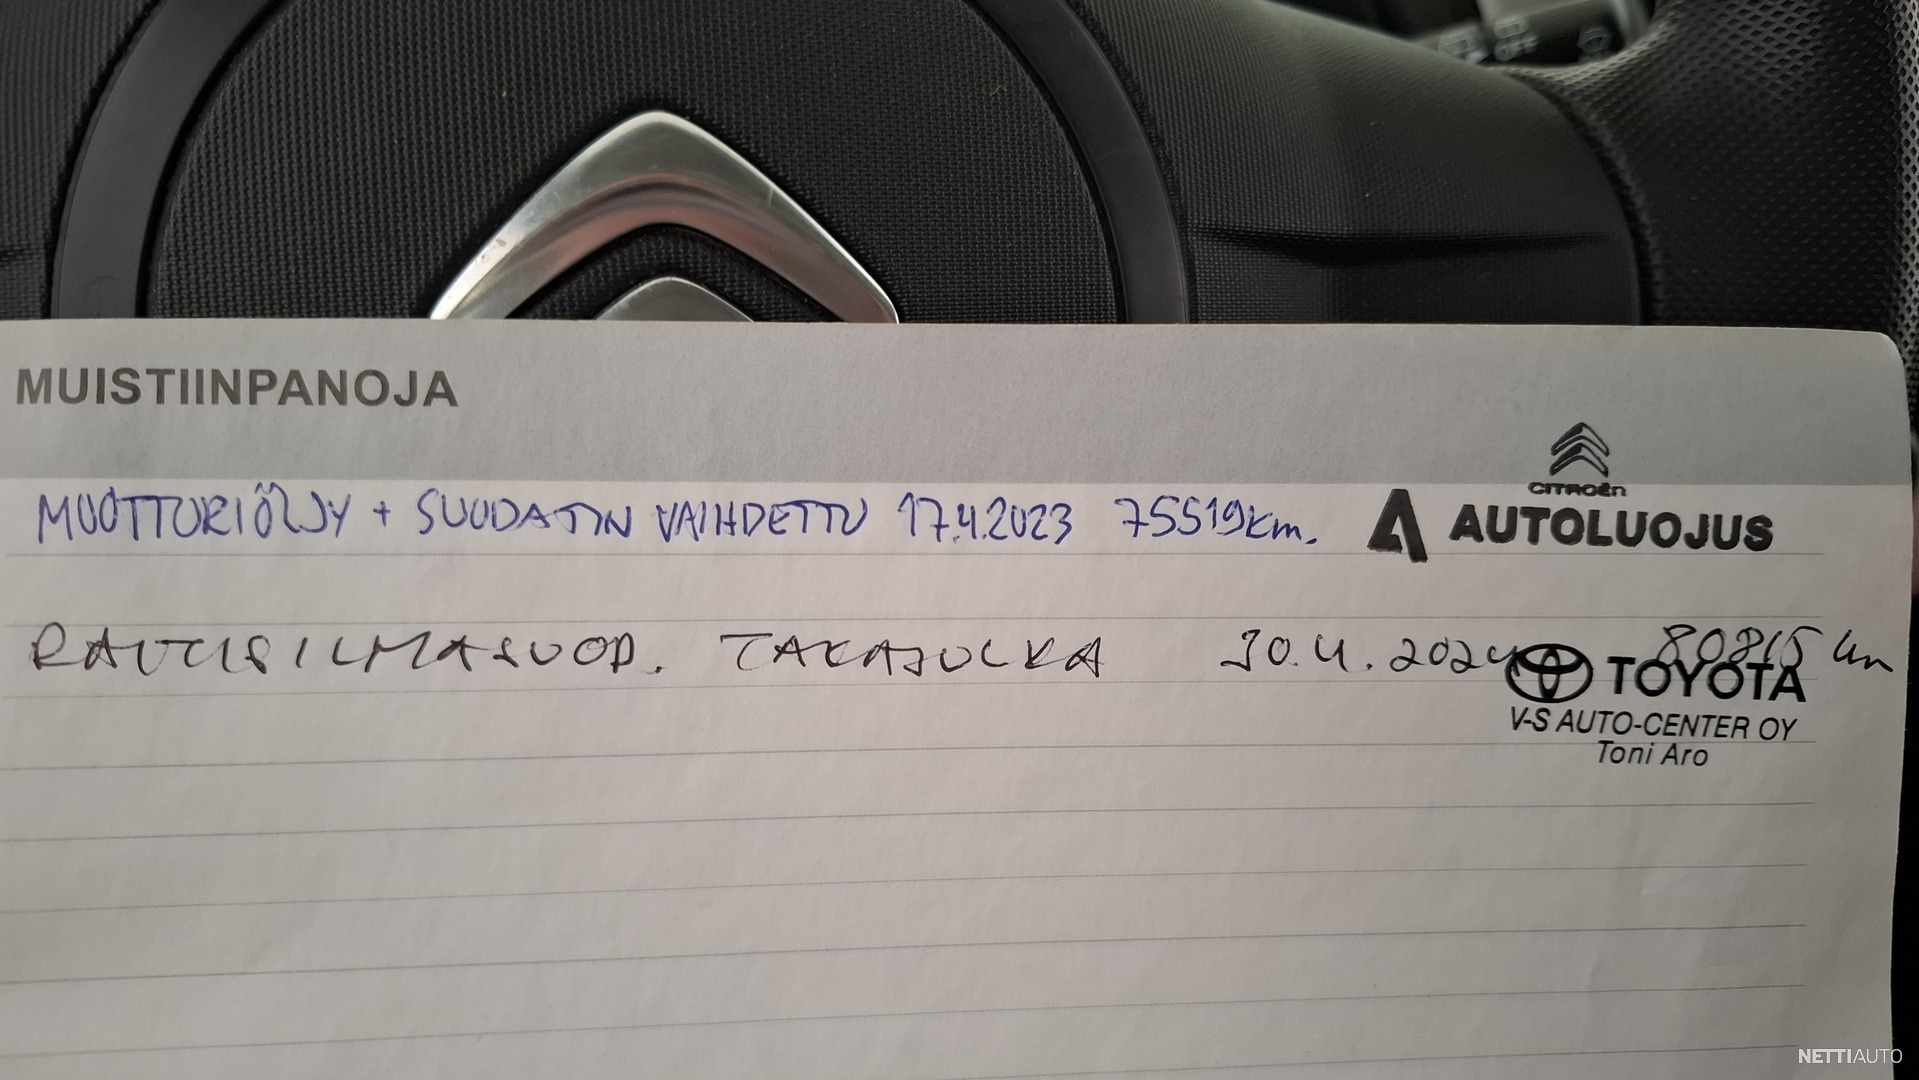 MUISTIINPANOJA
CITROËN
MUOTTORIÖLJY + SUODATIN VAIHDETTU 17.4.2023 75519km. AUTOLUOJUS
RAITISILMASUOD. TAKAJULKA 30.4.2024 80815 km
TOYOTA
V-S AUTO-CENTER OY
Toni Aro
NETTIAUTO